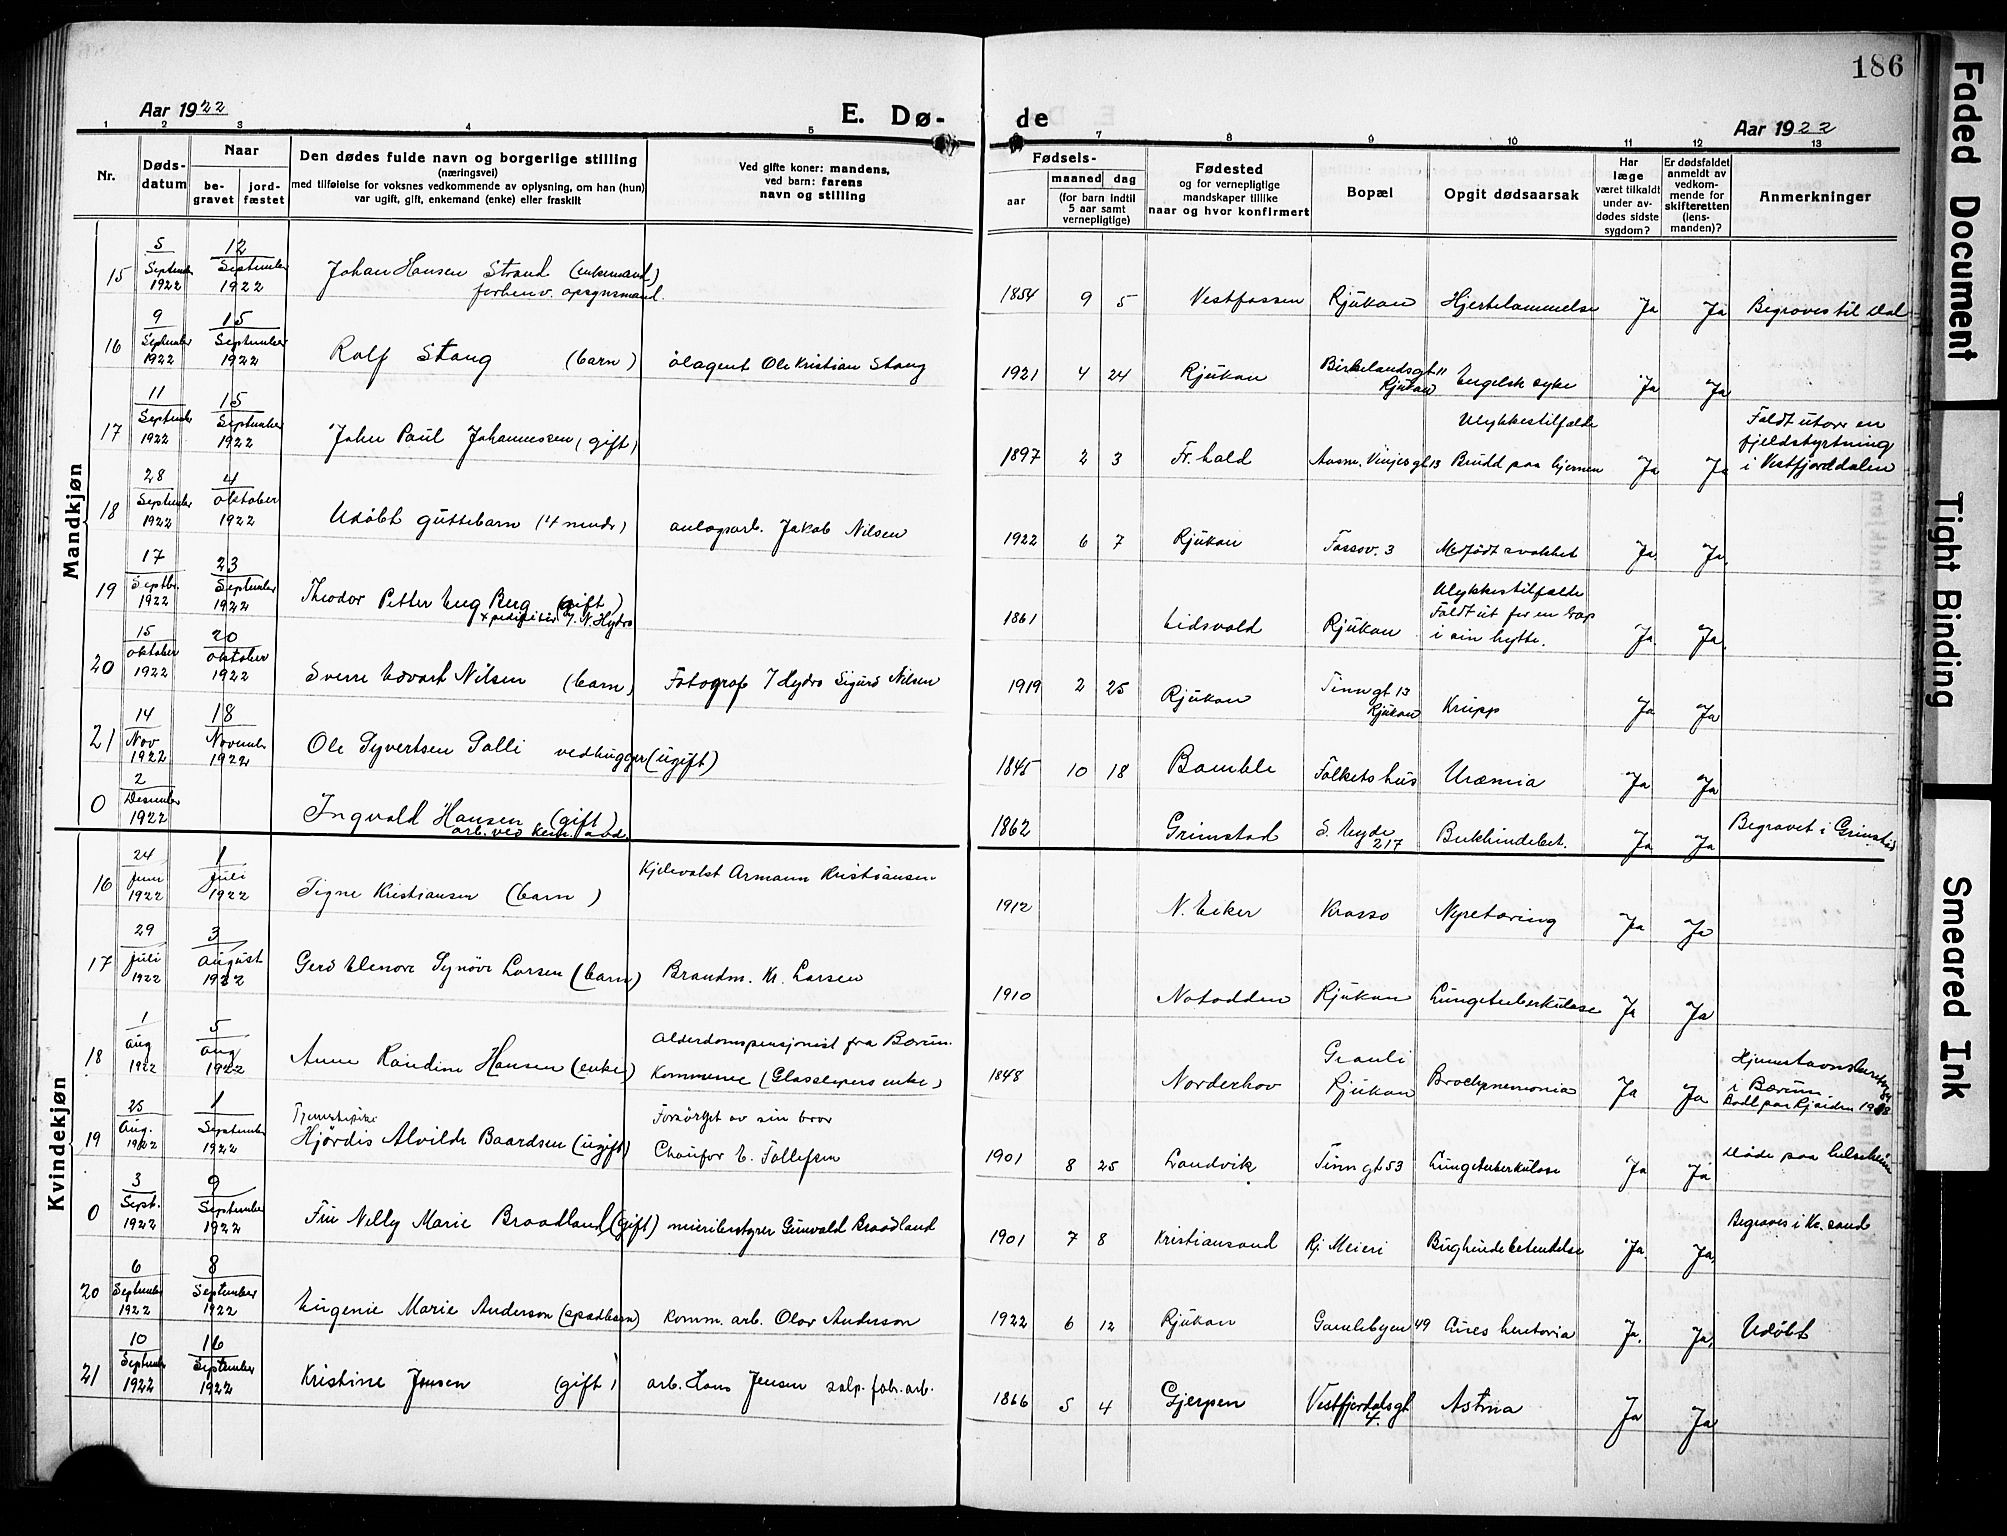 186
Aar 1922
E. Dø-
de
Aar 1922
1 2 3 4 5 7 8 9 10 11 12 13
Nr.
Døds-
datum
Naar
be-
gravet
jord-
fæstet
Den dødes fulde navn og borgerlige stilling
(næringsvei)
med tilføielse for voksnes vedkommende av oplysning, om han (hun)
var ugift, gift, enkemand (enke) eller fraskilt
Ved gifte koner: mandens,
ved barn: farens
navn og stilling
Fødsels-
aar
maaned dag
(for barn indtil
5 aar samt
vernepligtige)
Fødested
og for vernepligtige
mandskaper tillike
naar og hvor konfirmert
Bopæl
Opgit dødsaarsak
Har
læge
været tilkaldt
under av-
dødes sidste
sygdom?
Er dødsfaldet
anmeldt av
vedkom-
mende for
skifteretten
(lens-
manden)?
Anmerkninger
Mandkjøn
15 5 September 1922 12 September 1922 Johan Hansen Strand (enkemand) forhenv. opsynsmand. 1854 9 5 Vestfossen Rjukan Hjertelammelse Ja Ja Begraves til Dal
16 9 September 1922 15 September 1922 Rolf Stang (barn) ølagent Ole Kristian Stang 1921 4 24 Rjukan Birkelandsgt 11 Rjukan Engelsk syke Ja Ja
17 11 September 1922 15 September 1922 John Paul Johannessen (gift) 1897 2 3 Fr.hald Aasm. Vinjesgt 13 Ulykkestilfælde Brudd paa hjernen Ja Ja Faldt utover en fjeldstyrtning i Vestfjorddalen
18 28 September 1922 4 oktober 1922 Udøbt guttebarn (4 mndr) anlægsarb. Jakob Nilsen 1922 6 7 Rjukan Fossov. 3 Medfødt svakhet Ja Ja
19 17 Septbr. 1922 23 September 1922 Theodor Petter Eng Berg (gift) expeditør v/ N. Hydro 1861 Eidsvold Rjukan Ulykkestilfælde Faldt ut for en trap i sin hytte. Ja Ja
20 15 oktober 1922 20 oktober 1922 Sverre Edvart Nilsen (barn) Fotograf v/ Hydro Sigurd Nilsen 1919 2 25 Rjukan Tinngt 13 Rjukan Krupp Ja Ja
21 14 Nov 1922 18 November 1922 Ole Syvertsen Salli vedhugger (ugift) 1845 10 18 Bamble Folkets hus Uræmia Ja Ja
0 2 Desember 1922 Ingvald Hansen (gift) arb. ved kem. avd. 1862 Grimstad S. Ingolf 217 Bukhindebet. Ja Ja Begravet i Grimstad
Kvindekjøn
16 24 Juni 1922 1 Juli 1922 Signe Kristiansen (barn) Kjelevakt Armann Kristiansen 1912 N. Eiker Krosso Nyretæring Ja Ja
17 29 Juli 1922 3 August 1922 Gerd Elenore Synøve Larsen (barn) Brandm. Kr. Larsen 1910 Notodden Rjukan Lungetuberkulose Ja Ja
18 1 Aug 1922 5 Aug 1922 Anne Randine Hansen (enke) Alderdomspensjonist fra Bærum Kommune (Glassliepers enke) 1848 Norderhov Grauli Rjukan Ja Ja i Bærum
19 25 Aug. 1922 1 September 1922 Tjenestepike Hjørdis Alvilde Baardsen (ugift) Forsørget av sin bror Chaufør E. Tollefsen 1901 8 25 Landvik Tinngt 53 Lungetuberkulose Ja Ja Døde paa helseheim
0 3 Sept. 1922 9 September 1922 Fru Nelly Marie Braadland (gift) meieribestyrer Gunvald Braadland 1901 7 8 Kristiansand Rj. Meieri Bughindebetendelse Ja Ja Begraves i Kr. sand
20 6 September 1922 8 September 1922 Eugenie Marie Anderson (spædbarn) Komm. arb. Olav Anderson 1922 6 12 Rjukan Gamlebyen 49 Ja Ja Udøbt
21 10 September 1922 16 September 1922 Kristine Jensen (gift) arb. Hans Jensen salp. fabr. arb. 1866 5 4 Gjerpen Vestfjordalsgt 4. Astma Ja Ja
Faded Document
Tight Binding
Smeared Ink